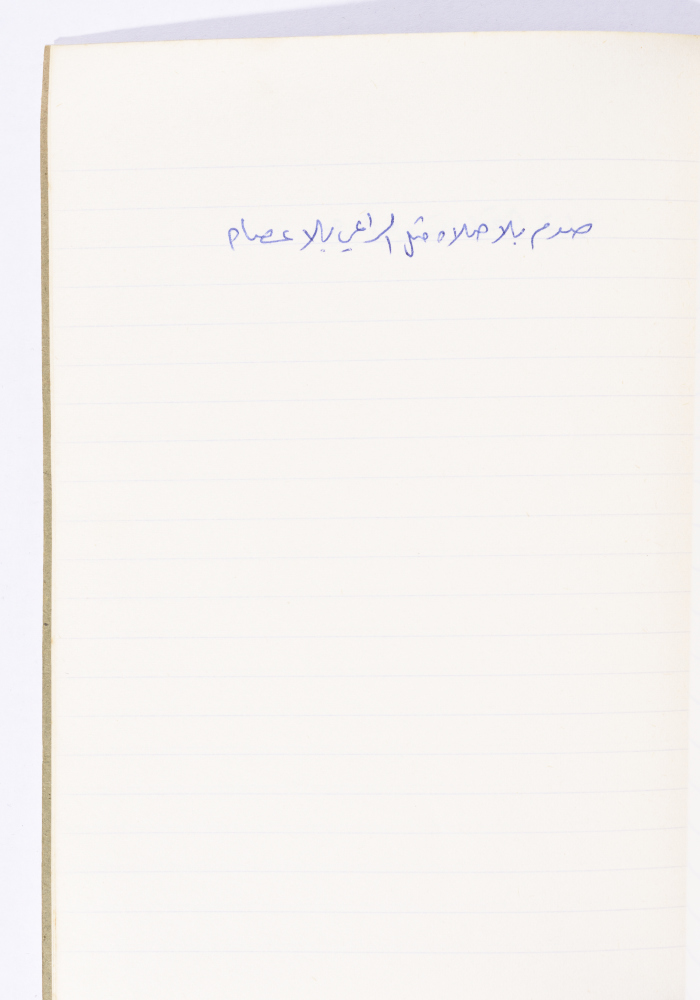 صوم بلا صلاه مثل الراعي بالا عصاه